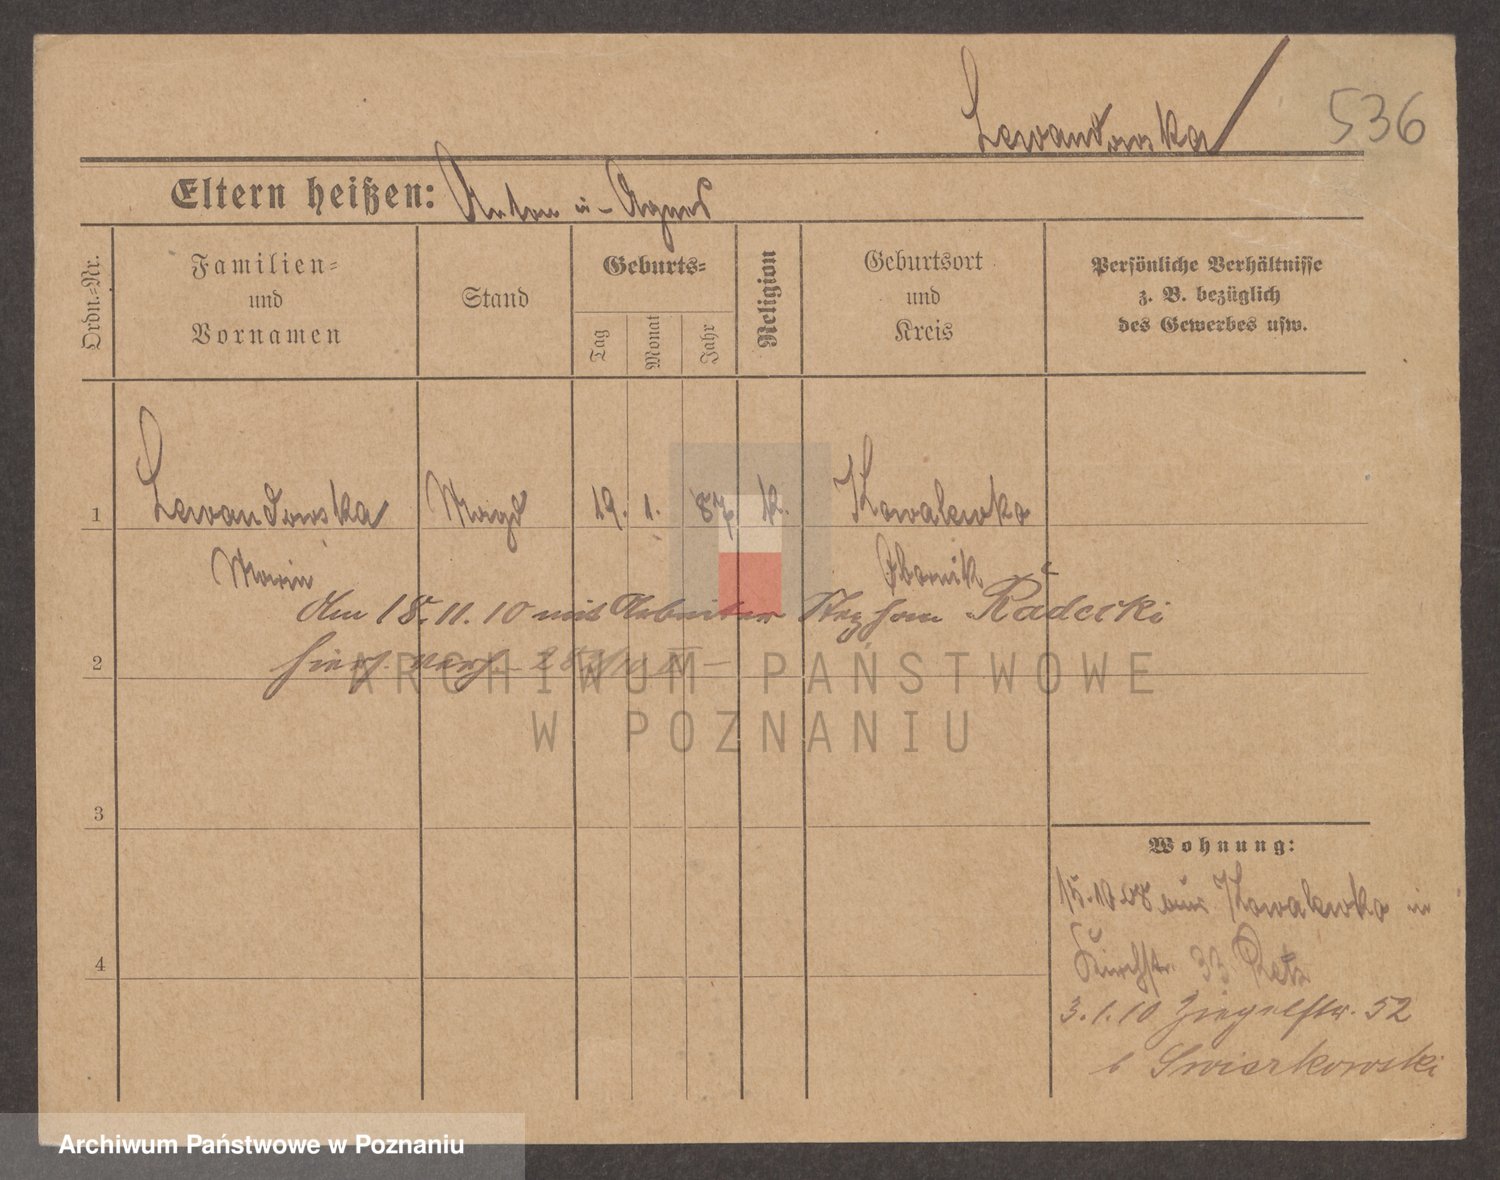 Lewandowska 536
Eltern heißen: Anton u. Agnes
Ordn.-Nr.
Familien-
und
Vornamen
Stand
Geburts-
Tag
Monat
Jahr
Religion
Geburtsort
und
Kreis
Persönliche Verhältnisse
z. B. bezüglich
des Gewerbes usw.
1 Lewandowska Magd 19. 1. 87 k. Kowalewko
Marie Obornik
Am 18.11.10 mit Arbeiter Radecki
2 hiers.
ARCHIWUM PAŃSTWOWE
W POZNANIU
3
Wohnung:
15.10.08 aus Kowalewko in
4 Kirchstr. 33
3.1.10 Ziegelstr. 52
b Swierkowski
Archiwum Państwowe w Poznaniu